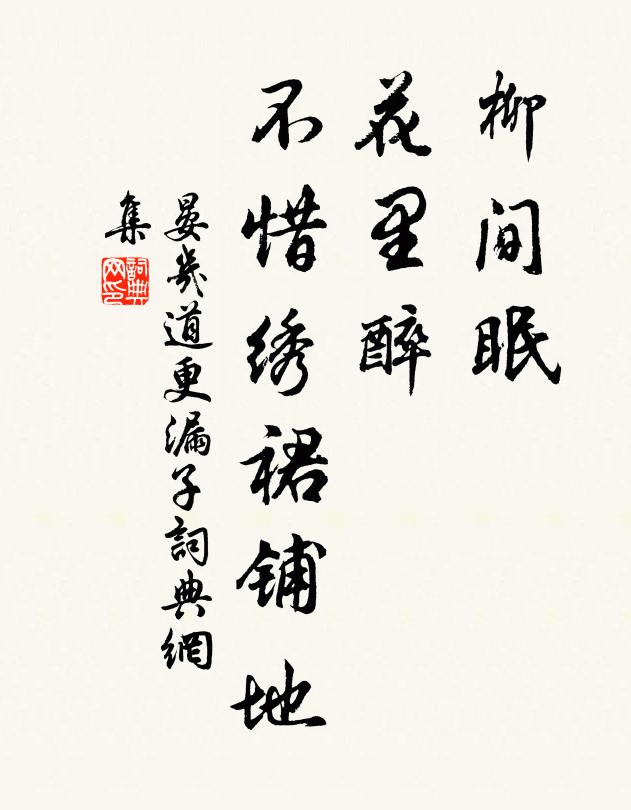 柳间眠
花里醉
不惜绣裙铺地
晏幾道更漏子詞典網
集
詞典網印